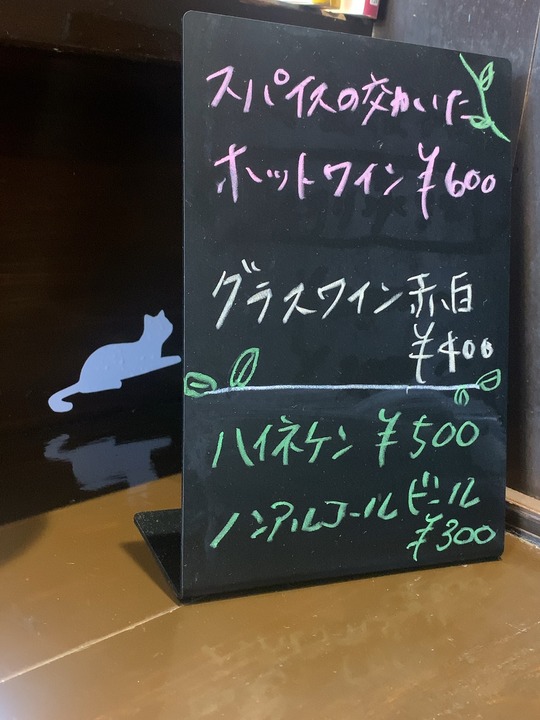 スパイスの効いた
ホットワイン ¥600
グラスワイン 赤白
¥400
ハイネケン ¥500
ノンアルコールビール
¥300